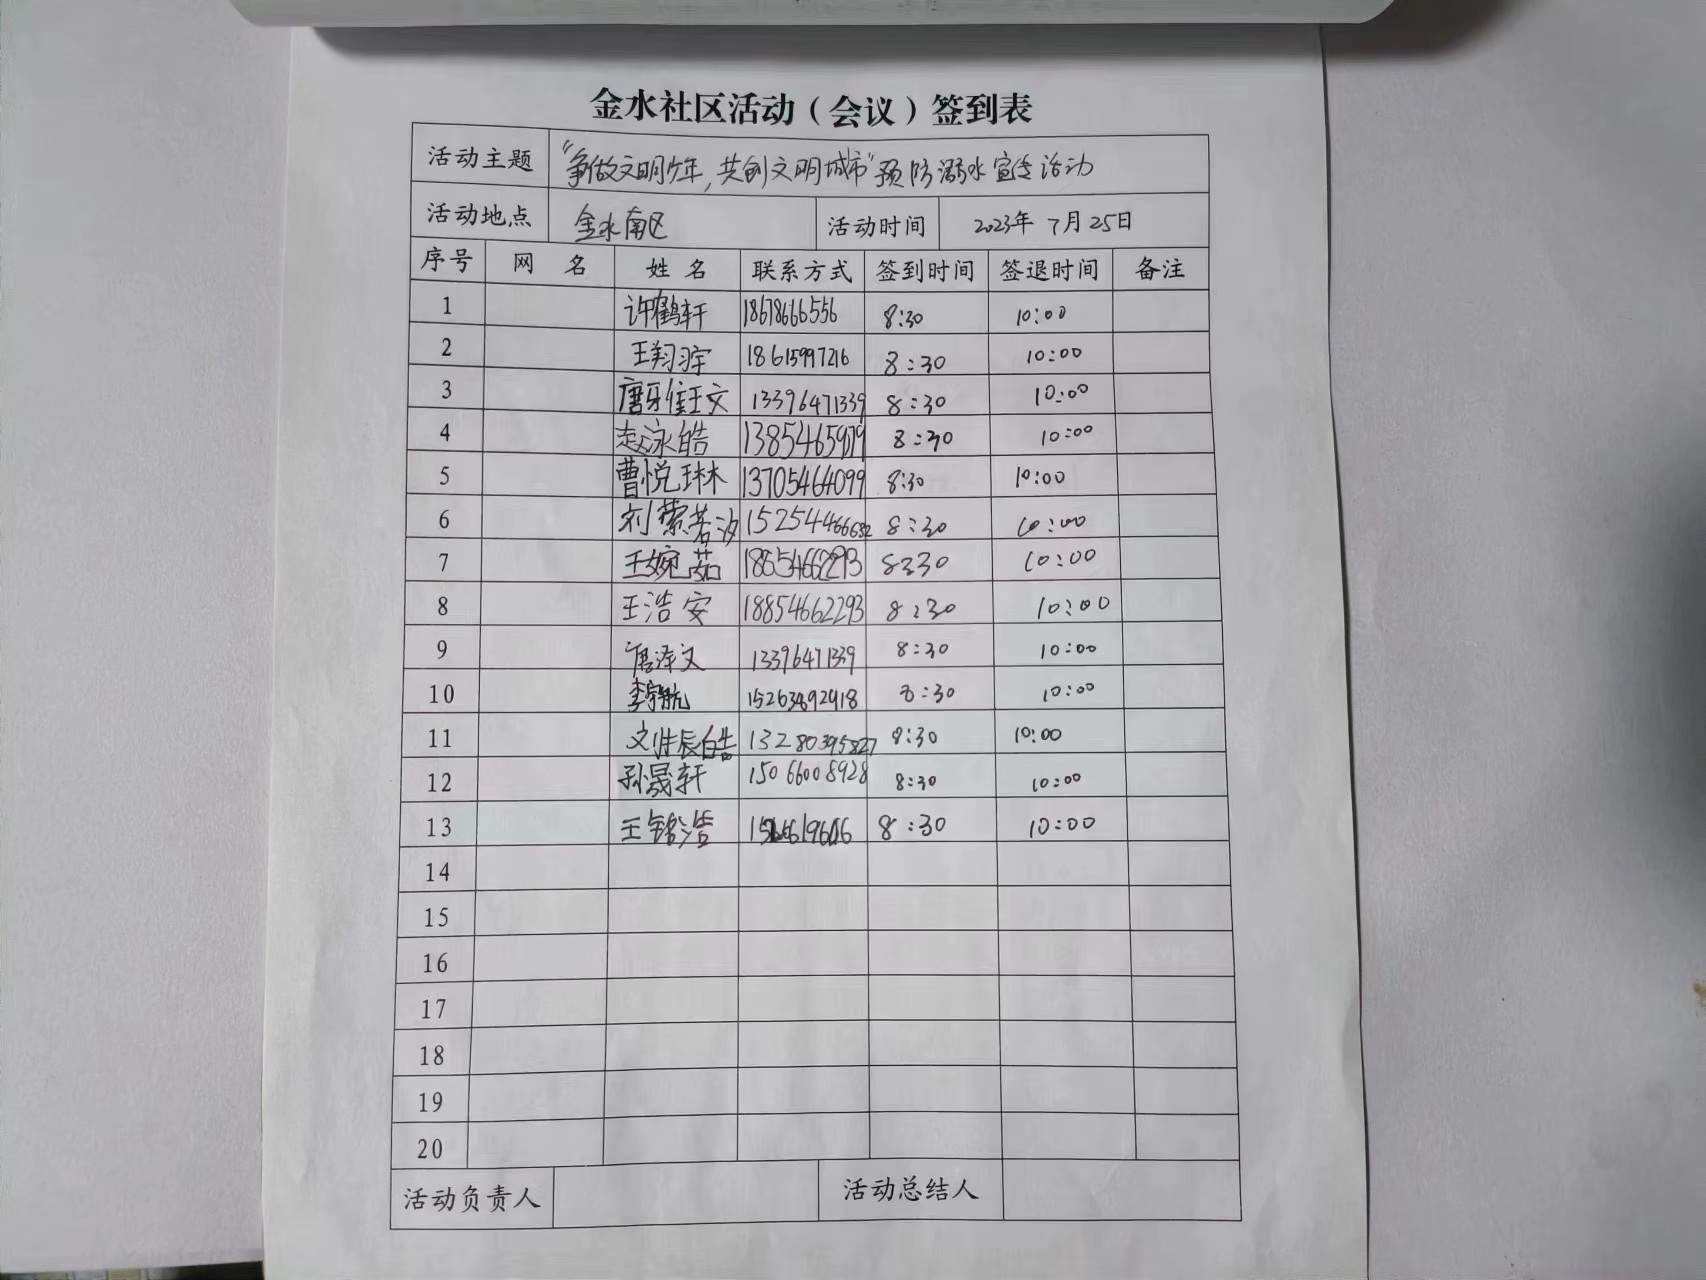 金水社区活动（会议）签到表
活动主题 “争做文明少年，共创文明城市”预防溺水宣传活动
活动地点 金水南区 活动时间 2023年 7月25日
序号 网 名 姓 名 联系方式 签到时间 签退时间 备注
1 许鹤轩 18678666556 8:30 10:00
2 王翔宇 18615997216 8:30 10:00
3 唐 文 13396471339 8:30 10:00
4 赵泳皓 13854659 8:30 10:00
5 曹悦琳 13705464099 8:30 10:00
6 刘 若汐 15254466682 8:30 10:00
7 王婉茹 18854662293 8:30 10:00
8 王浩安 18854662293 8:30 10:00
9 唐泽文 13396471339 8:30 10:00
10 李宇航 15263892918 8:30 10:00
11 刘 辰皓 13280395827 8:30 10:00
12 孙晟轩 15066008928 8:30 10:00
13 王 浩 8:30 10:00
14
15
16
17
18
19
20
活动负责人 活动总结人